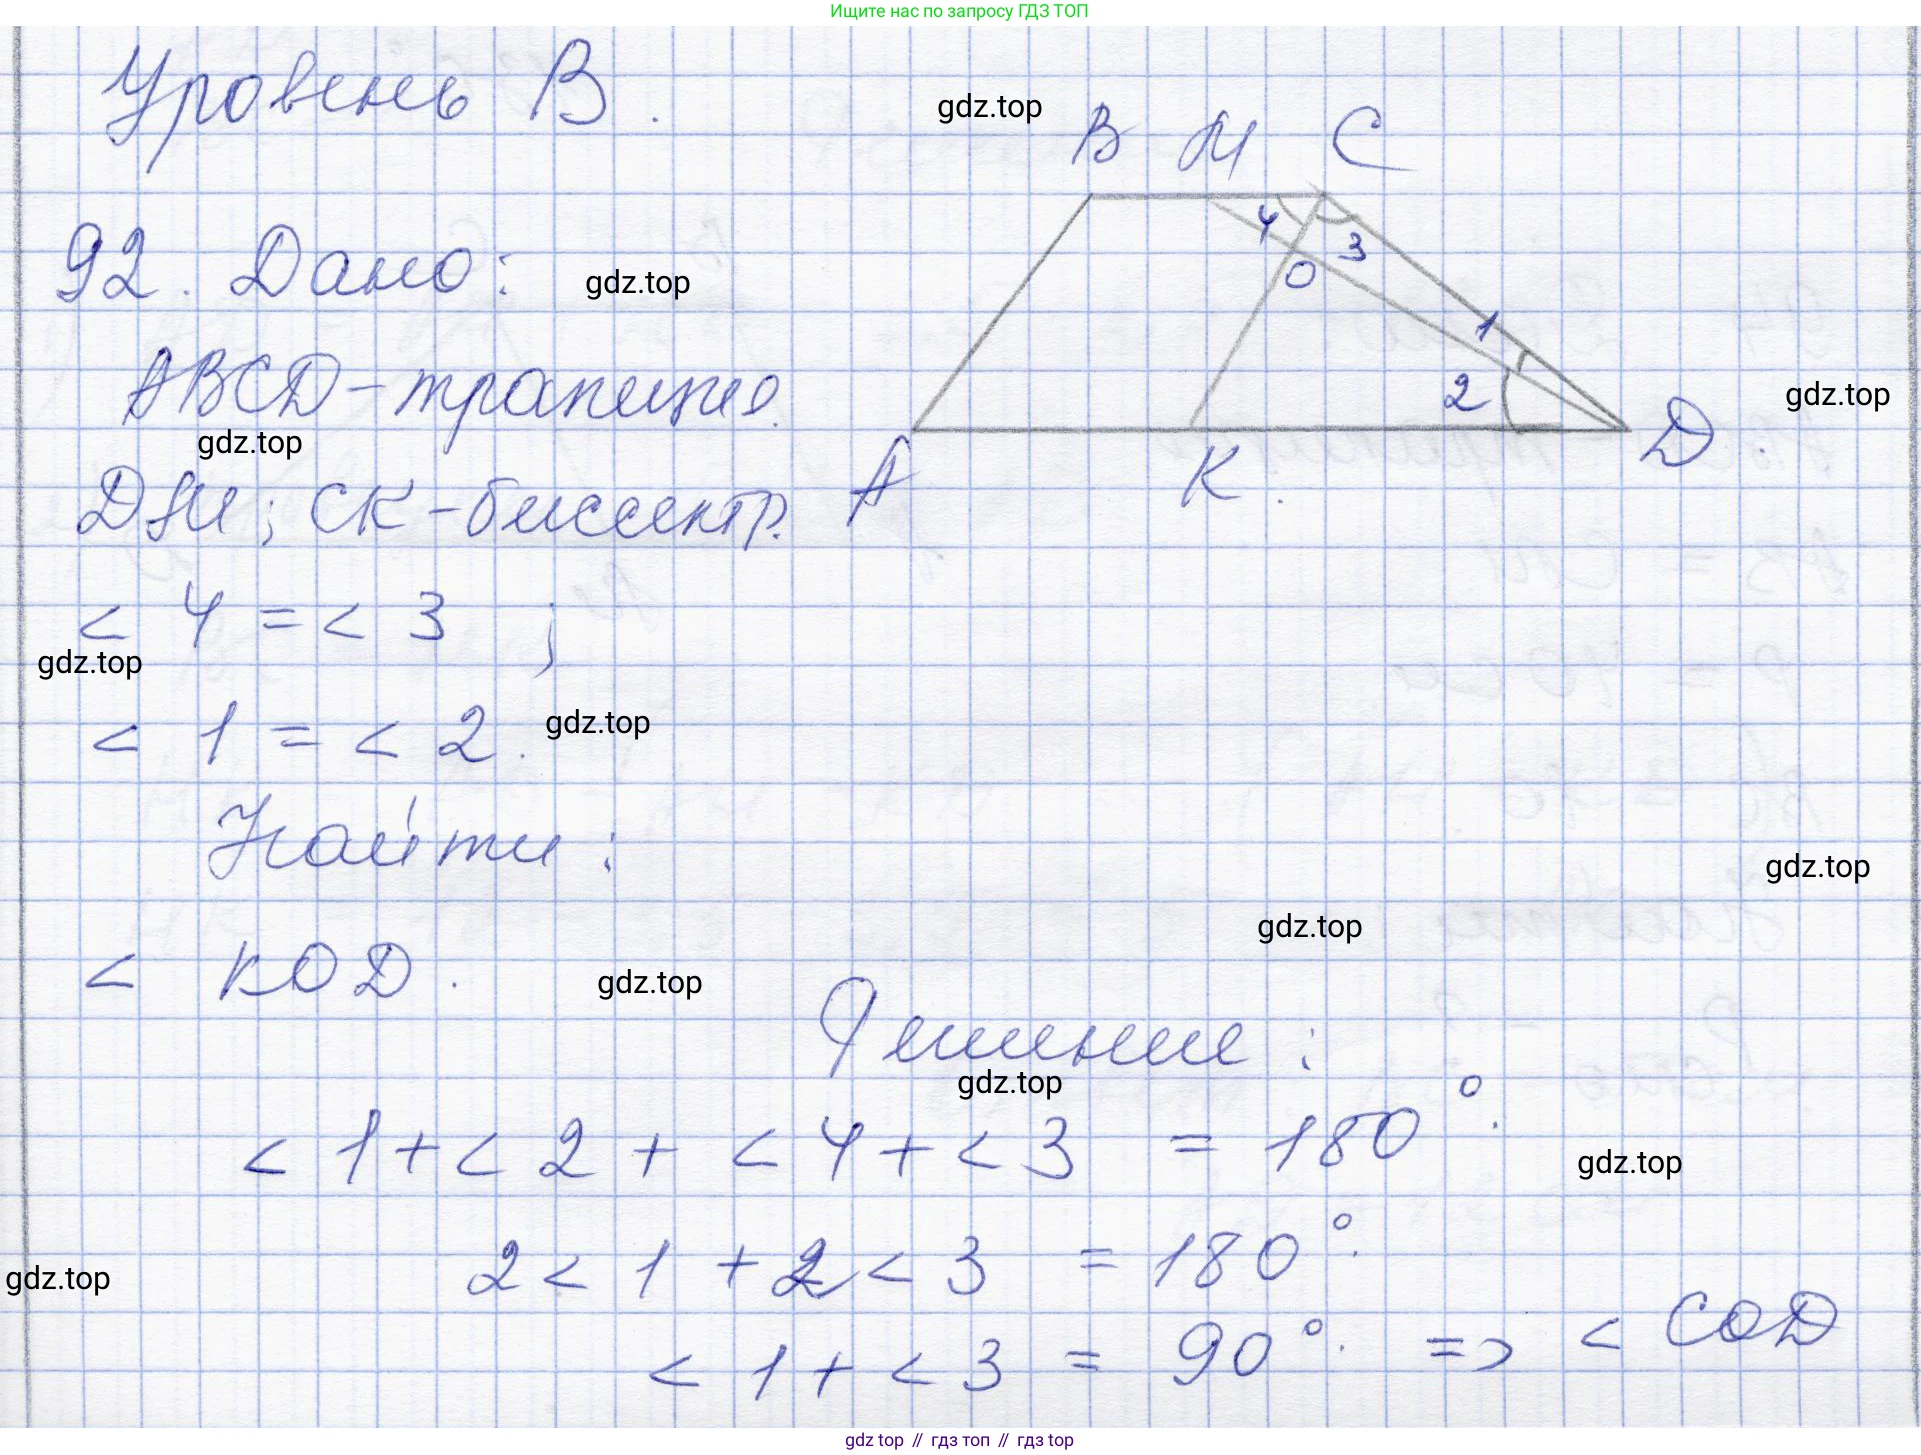 Ищите нас по запросу ГДЗ ТОП
Уровень В.
gdz.top
B M C
92. Дано:
gdz.top
4 3
O
1
2
ABCD - трапеция.
gdz.top
gdz.top
A K. D.
DM; CK - биссектр.
< 4 = < 3 ;
gdz.top
< 1 = < 2.
gdz.top
Найти:
gdz.top
gdz.top
< KOD.
gdz.top
Решение:
gdz.top
< 1 + < 2 + < 4 + < 3 = 180°.
gdz.top
2 < 1 + 2 < 3 = 180°.
gdz.top
< 1 + < 3 = 90°. => < COD
gdz top // гдз топ // гдз top